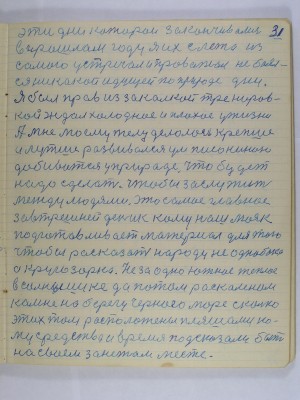 31
эти дни которой закончился
в прошлом году я их с лета из
самого устречал и провожал не боял-
ся никакой идущей по природе
Я был прав из закалкой трениров-
кой ждал холодное и плохое у жизни
А мне моему телу делалось крепше
и лутше развывался ум писониною
добиватся у природе, что будет
надо сделать. чтобы заслужит
между людями. Это самое главное
завтрешней деник кому наш маяк
подготавливает матерьял для того
чтобы рассказать народу не однобоко
а кругозорко. Не за одно южное теплое
в солнушке да потом раскаленом
камне на берегу Черного море сколко
этих там расположеных пляшами ко-
му средства и время подсказали быть
на своем занятом месте.